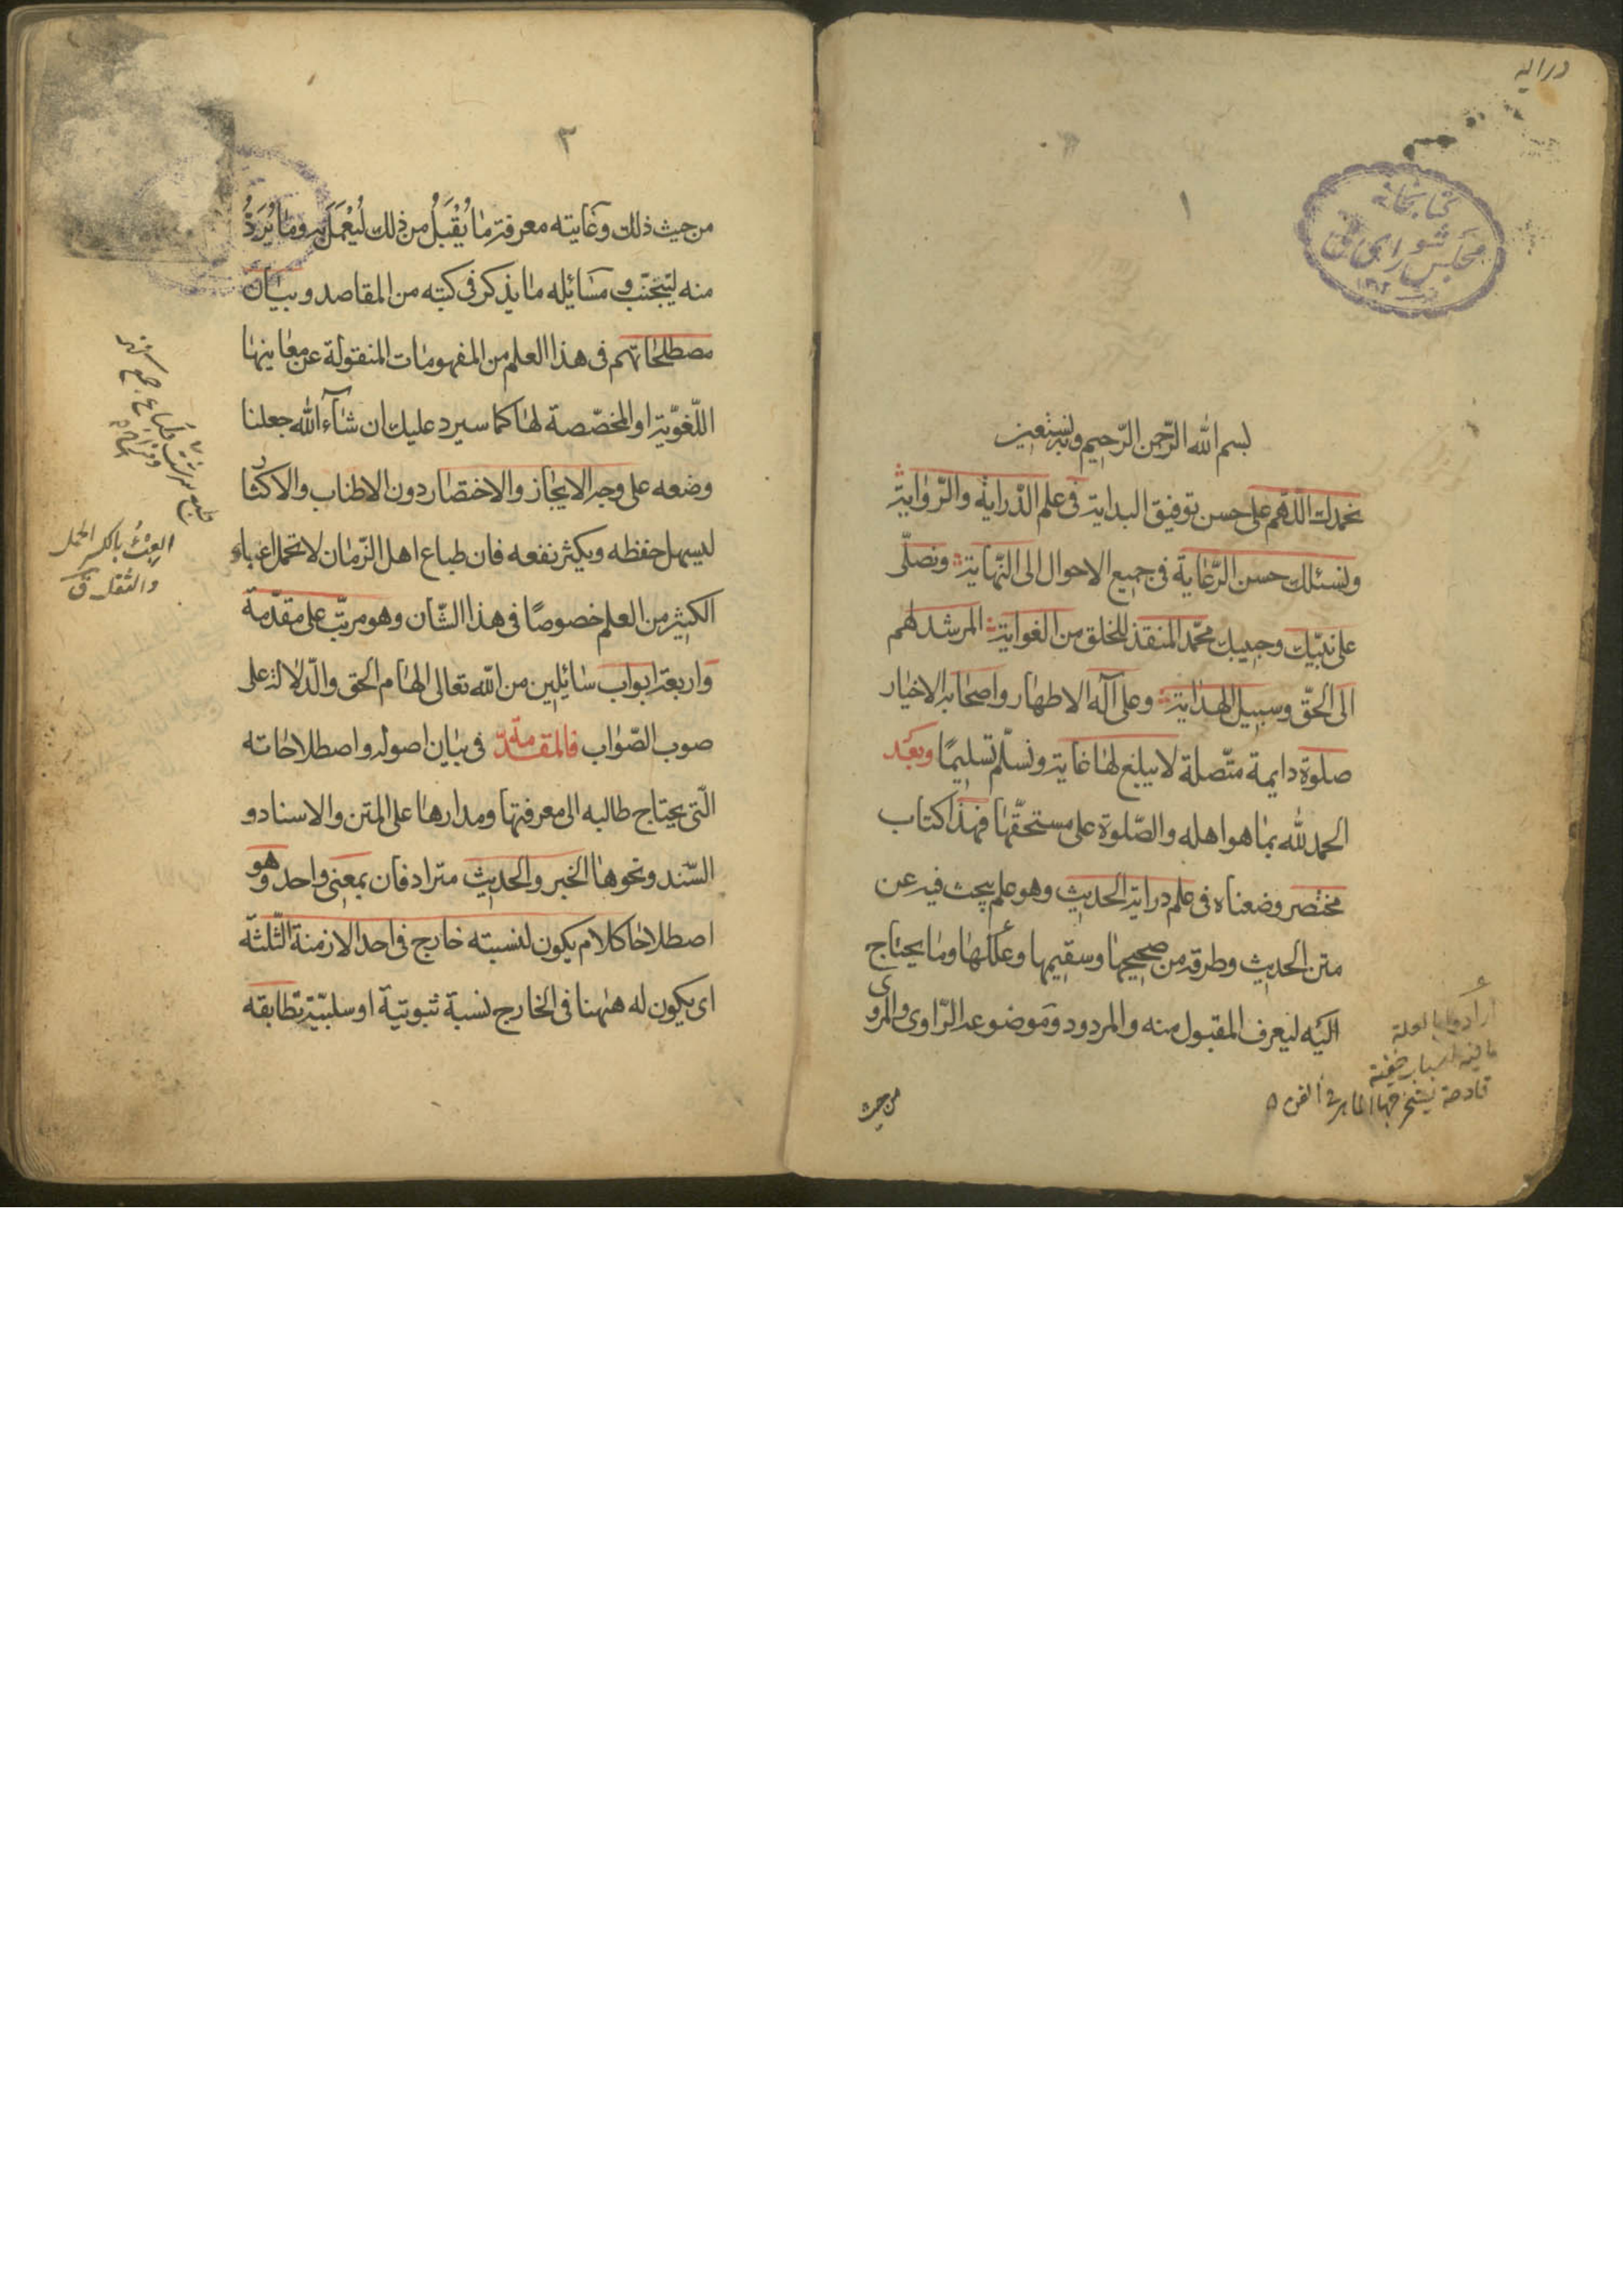 درايه
كتابخانه
مجلس شورای ملی
١
بسم الله الرّحمن الرّحيم وبه نستعين
نحمدك اللّهم على حسن توفيق البداية فى علم الدّراية والرّواية
ونسئلك حسن الرّعاية فى جميع الاحوال الى النّهاية ونصلّى
على نبيّك وحبيبك محمّد المنقذ للخلق من الغواية المرشد لهم
الى الحقّ وسبيل الهداية وعلى آله الاطهار واصحابه الاخيار
صلوة دايمة متّصلة لا يبلغ لها غاية ونسلّم تسليمًا وبعد
الحمد لله بما هو اهله والصّلوة على مستحقّها فهذا كتاب
مختصر وضعناه فى علم دراية الحديث وهو علم يبحث فيه عن
متن الحديث وطرقه من صحيحها وسقيمها وعللها وما يحتاج
اليه ليعرف المقبول منه والمردود وموضوعه الرّاوى والمروى
ارادوا بالعلة
ما فيه اسباب خفية
قادحة يستخرجها الماهر فى الفن
من حيث
٢
من حيث ذلك وغايته معرفة ما يُقْبَلُ من ذلك لُيعْمَلَ به وما يُرَدُّ
منه ليتجنّب ومسائله ما يذكر فى كتبه من المقاصد وبيان
مصطلحاتهم فى هذا العلم من المفهومات المنقولة عن معانيها
اللّغويّة او المخصّصة لها كما سيرد عليك ان شآء الله جعلنا
وضعه على وجه الايجاز والاختصار دون الاطناب والاكثار
ليسهل حفظه ويكثر نفعه فان طباع اهل الزّمان لا تحمل اعباء
الكثير من العلم خصوصًا فى هذا الشّان وهو مرتّب على مقدّمة
واربعة ابواب سائلين من الله تعالى الهام الحق والدّلالة على
صوب الصّواب فالمقدّمة فى بيان اصوله واصطلاحاته
الّتى يحتاج طالبه الى معرفتها ومدارها على المتن والاسناد و
السّند ونحوها الخبر والحديث مترادفان بمعنى واحد وهو
اصطلاحا كلام يكون لنسبته خارج فى احد الازمنة الثّلثة
اى يكون له هٰهنا فى الخارج نسبة ثبوتيّة او سلبيّة تطابقه
العِبْئُ بالكسر الحمل
والثقل ق